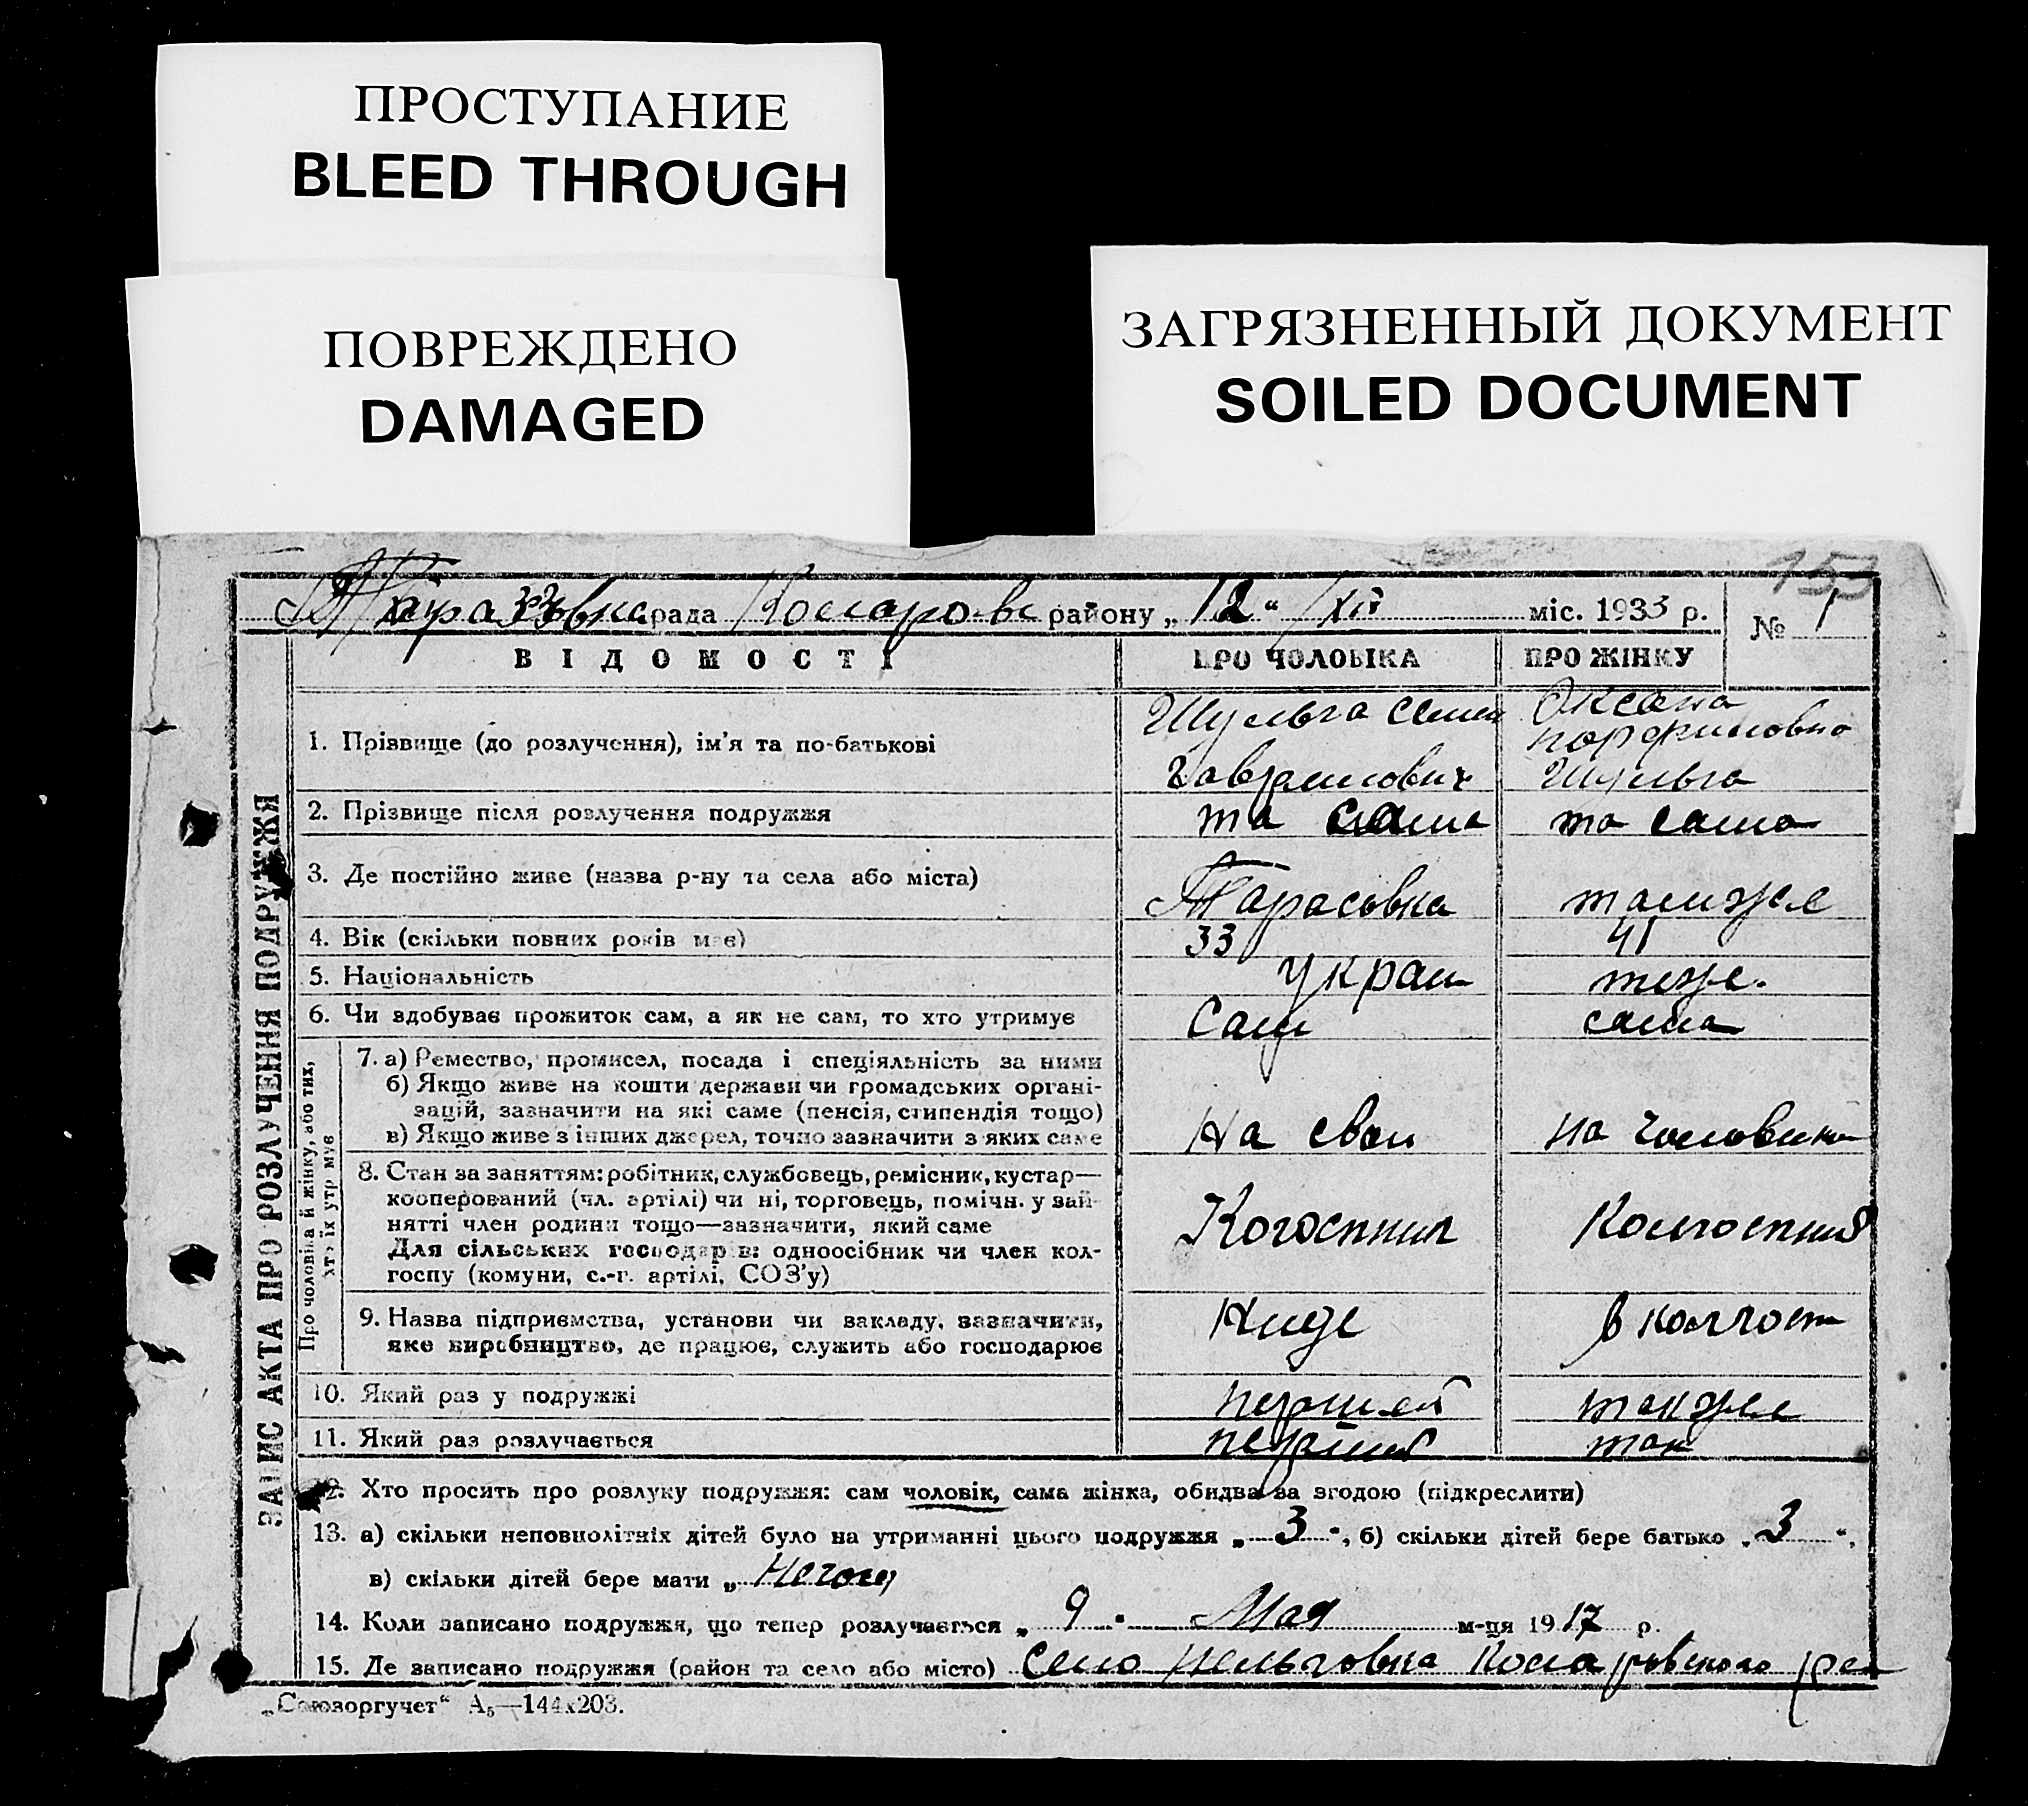 ПРОСТУПАНИЕ
BLEED THROUGH
ПОВРЕЖДЕНО
DAMAGED
ЗАГРЯЗНЕННЫЙ ДОКУМЕНТ
SOILED DOCUMENT
153
рада Комаровс району „12“ /XII міс. 1933 р.
№ 1
ВІДОМОСТІ ПРО ЧОЛОВІКА ПРО ЖІНКУ
ЗАПИС АКТА ПРО РОЗЛУЧЕННЯ ПОДРУЖЖЯ
1. Прізвище (до розлучення), ім'я та по-батькові
Шульга Семен
Гаврилович
Оксана
Порфиловна
Шульга
2. Прізвище після розлучення подружжя та сама та сама
3. Де постійно живе (назва р-ну та села або міста) Тарасовка тамже
4. Вік (скільки повних років має) 33 41
5. Національність Украи теже.
6. Чи здобуває прожиток сам, а як не сам, то хто утримує Сам сама
Про чоловіка й жінку, або тих,
хто їх утримує
7. а) Ремество, промисел, посада і спеціяльність за ними
б) Якщо живе на кошти держави чи громадських органі-
зацій, зазначити на які саме (пенсія, стипендія тощо)
в) Якщо живе з інших джерел, точно зазначити з яких саме
На свои на человика
8. Стан за заняттям: робітник, службовець, ремісник, кустар—
кооперований (чл. артілі) чи ні, торговець, помічн. у зай-
нятті член родини тощо—зазначити, який саме
Для сільських господарів: одноосібник чи член кол-
госпу (комуни, с.-г. артілі, СОЗ'у)
Когоспник Колгоспник
9. Назва підприємства, установи чи закладу, зазначити,
яке виробництво, де працює, служить або господарює
Нидe в колгосп
10. Який раз у подружжі першей также
11. Який раз розлучається перший так
12. Хто просить про розлуку подружжя: сам чоловік, сама жінка, обидва за згодою (підкреслити)
13. а) скільки неповнолітніх дітей було на утриманні цього подружжя „3“, б) скільки дітей бере батько „3“,
в) скільки дітей бере мати „
14. Коли записано подружжя, що тепер розлучається „9“ Мая м-ця 1917 р.
15. Де записано подружжя (район та село або місто) Село Пельговка Комаровского рай
„Союзоргучет“ А₅—144x203.